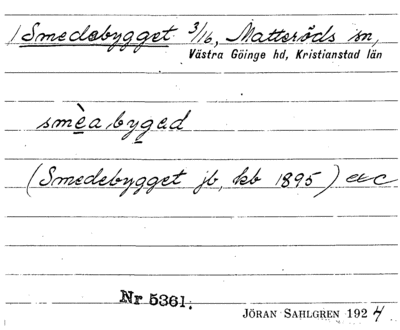 1 Smedebygget 3/16, Matteröds sn,
Västra Göinge hd, Kristianstad län
smèabyged
(Smedebygget jb, kb 1895) etc
Nr 5361.
JÖRAN SAHLGREN 1924